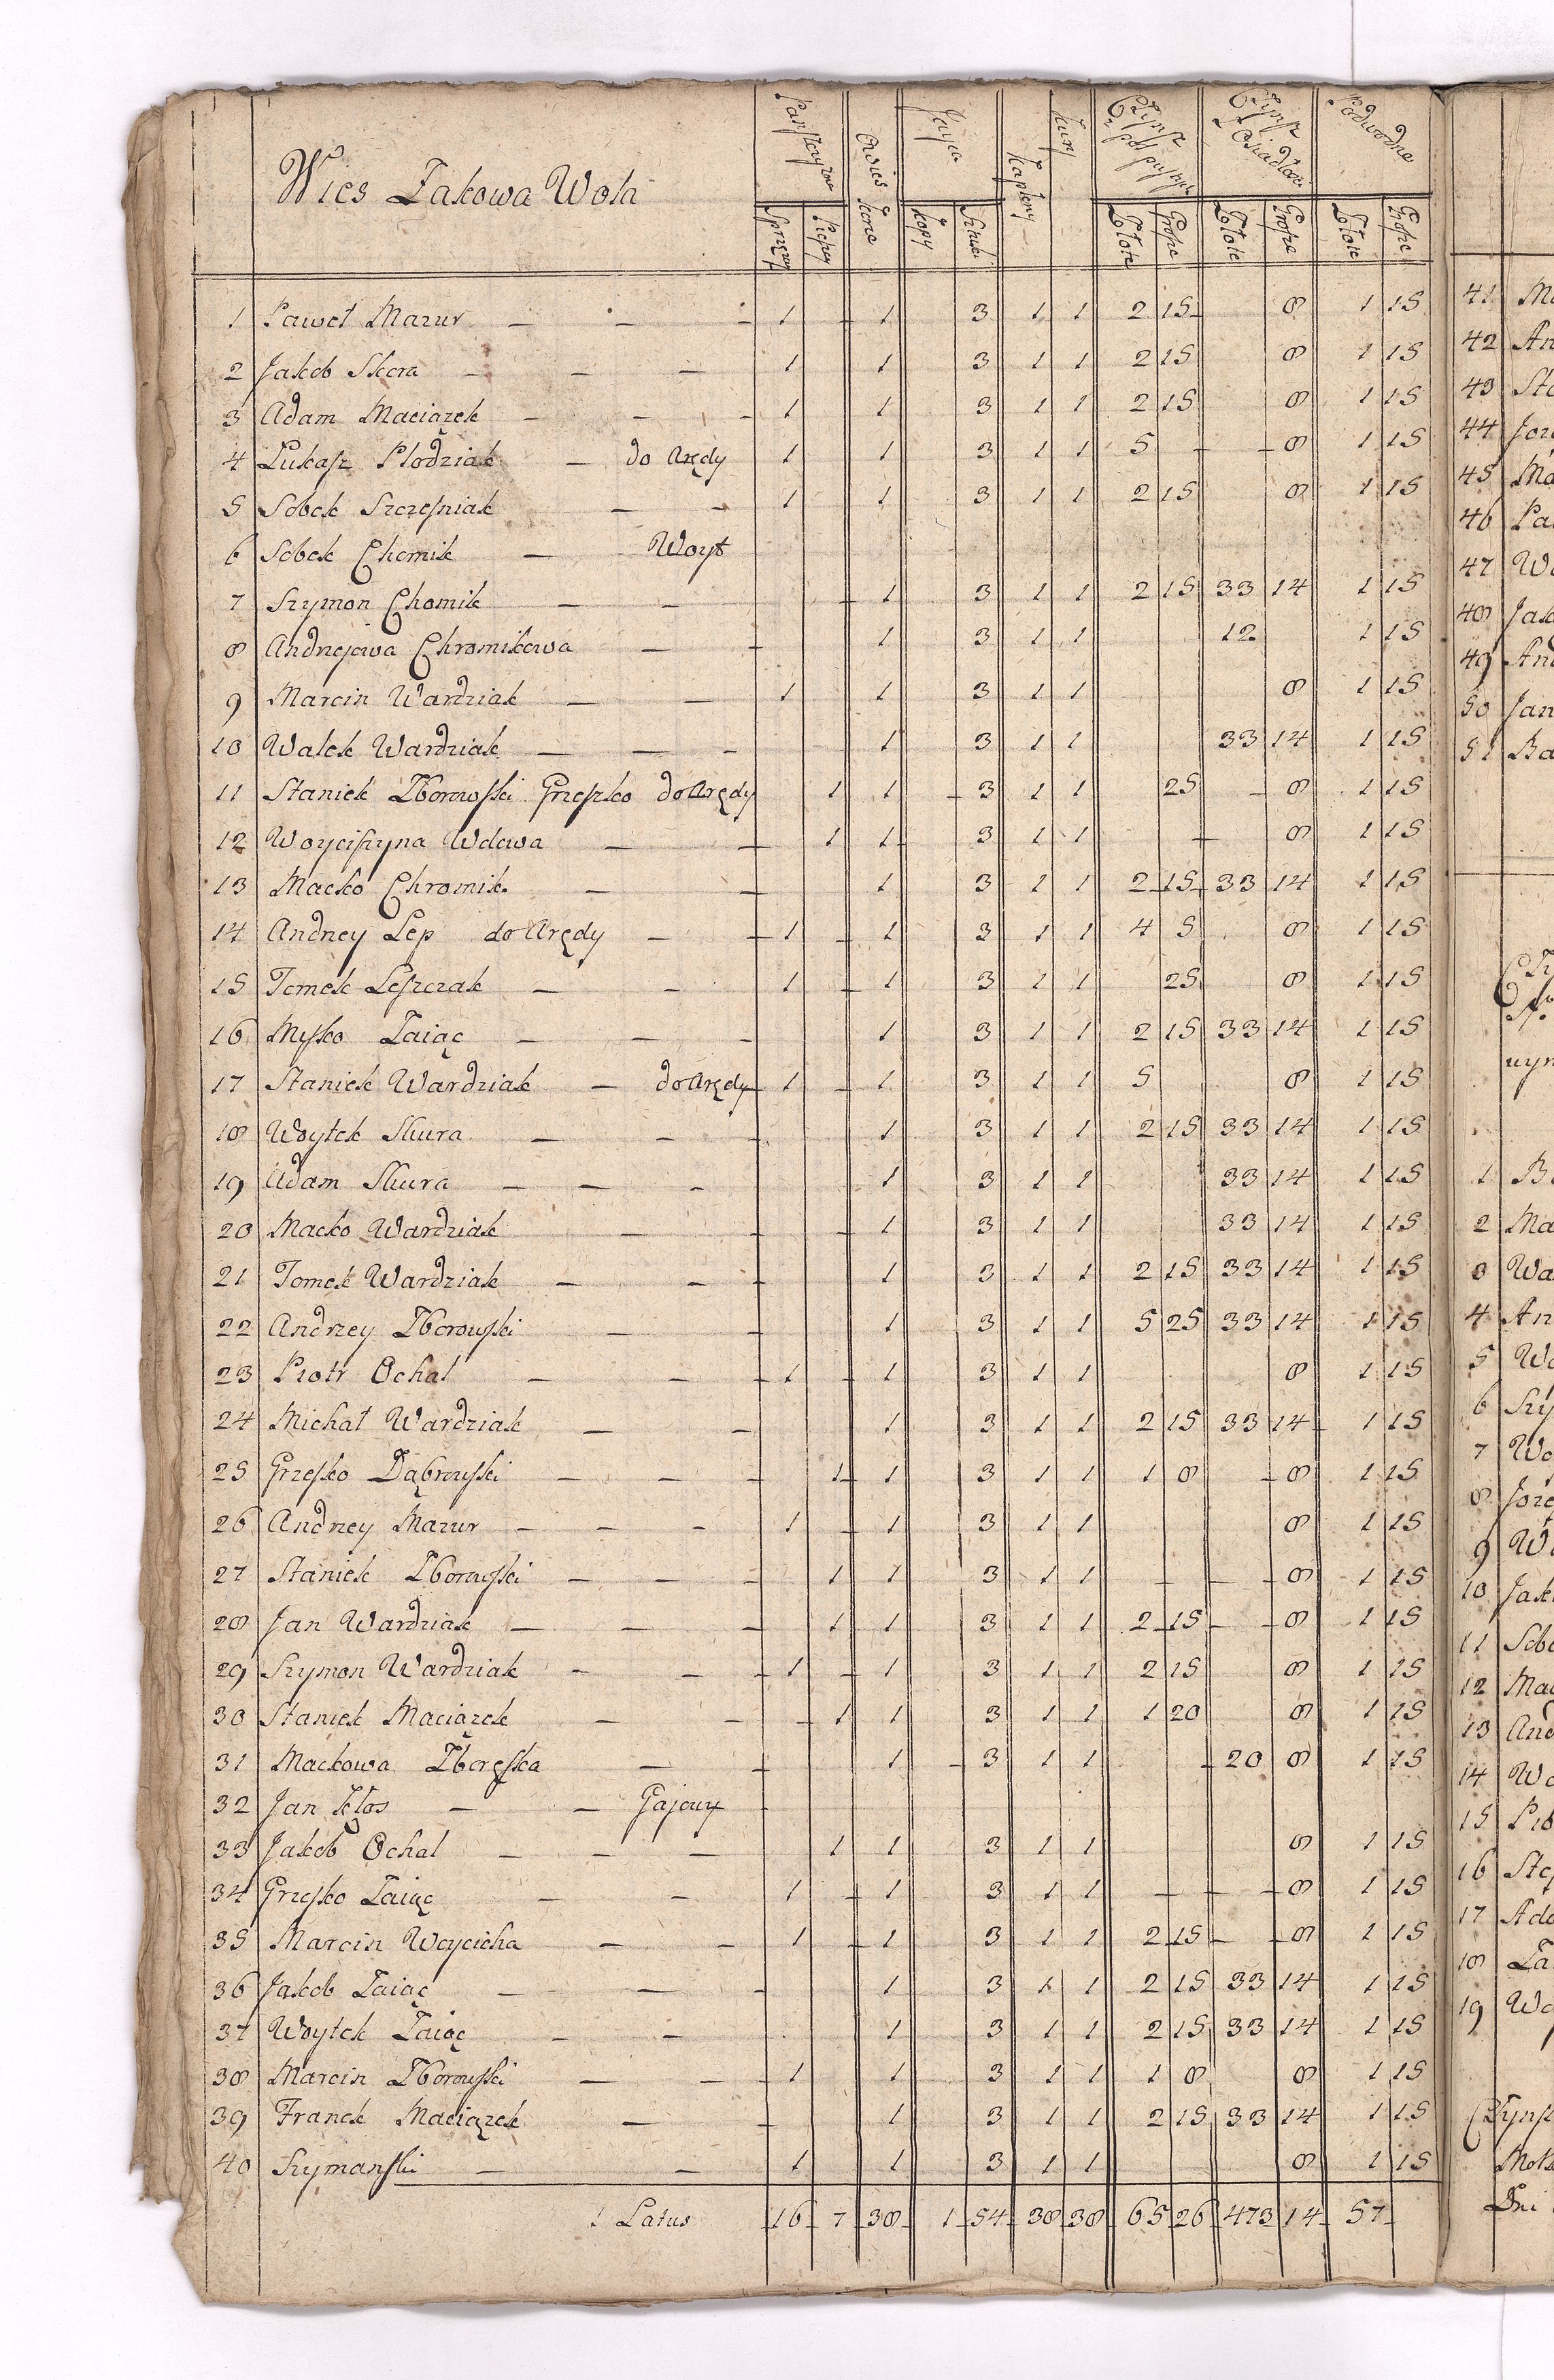 Wies Żakowa Wola
Panszczyzna Owies Jayca Kapłony Kury Czynsz Czynsz z Osiadłości Podwodne
Sprzęzay Pieszey korce kopy Sztuki Złote Grosze Złote Grosze Złote Grosze
1 Paweł Mazur - - - 1 1 3 1 1 2 15 8 1 15
2 Jakob Skora - - - 1 1 3 1 1 2 15 8 1 15
3 Adam Maciązek - - - 1 1 3 1 1 2 15 8 1 15
4 Łukasz Plodziak - do Arędy 1 1 3 1 1 5 - - 8 1 15
5 Sobek Szczesniak - - 1 1 3 1 1 2 15 8 1 15
6 Sobek Chomik - Woyt
7 Szymon Chomik - - - 1 3 1 1 2 15 33 14 1 15
8 Andrzejowa Chromikowa - - 1 3 1 1 12 1 15
9 Marcin Wardziak - - 1 1 3 1 1 8 1 15
10 Walek Wardziak - - - 1 3 1 1 33 14 1 15
11 Staniek Zborowski Grzeszko do Arędy 1 1 - 3 1 1 25 - 8 1 15
12 Woyciszyna Wdowa - - 1 1 3 1 1 - 8 1 15
13 Maćko Chromik - - 1 3 1 1 2 15 33 14 1 15
14 Andrzey Lep do Arędy - - 1 - 1 3 1 1 4 5 8 1 15
15 Tomek Leszczak - - 1 - 1 3 1 1 25 8 1 15
16 Mysko Zaiąc - - - 1 3 1 1 2 15 33 14 1 15
17 Staniek Wardziak - do Arędy 1 - 1 3 1 1 5 8 1 15
18 Woytek Skura - - - 1 3 1 1 2 15 33 14 1 15
19 Adam Skura - - - 1 3 1 1 33 14 1 15
20 Maćko Wardziak - - - 1 3 1 1 33 14 1 15
21 Tomek Wardziak - - - 1 3 1 1 2 15 33 14 1 15
22 Andrzey Zborowski - - 1 3 1 1 5 25 33 14 1 15
23 Piotr Ochal - - - 1 - 1 3 1 1 8 1 15
24 Michał Wardziak - - 1 3 1 1 2 15 33 14 1 15
25 Grzesko Dąbrowski - - - 1 1 3 1 1 1 8 - 8 1 15
26 Andrzey Mazur - - - 1 - 1 3 1 1 8 1 15
27 Staniek Zborowski - - - 1 1 3 1 1 - - - 8 1 15
28 Jan Wardziak - - - 1 1 3 1 1 2 15 - - 8 1 15
29 Szymon Wardziak - - - 1 - 1 3 1 1 2 15 8 1 15
30 Staniek Maciązek - - - 1 1 3 1 1 1 20 8 1 15
31 Maćkowa Zboręska - - 1 - 3 1 1 - 20 8 1 15
32 Jan Kłos - - Gajowy -
33 Jakob Ochal - - - 1 1 3 1 1 8 1 15
34 Grzesko Zaiąc - - 1 - 1 3 1 1 - - - 8 1 15
35 Marcin Woycicha - - 1 - 1 3 1 1 2 15 - - 8 1 15
36 Jakob Zaiąc - - - 1 3 1 1 2 15 33 14 1 15
37 Woytek Zaiąc - - 1 3 1 1 2 15 33 14 1 15
38 Marcin Zborowski - - - 1 1 3 1 1 1 8 8 1 15
39 Franek Maciązek - - 1 3 1 1 2 15 33 14 1 15
40 Szymanski - - 1 1 3 1 1 8 1 15
1 Latus 16 7 38 1 54 38 38 65 26 473 14 57
41
42 An
43
44
45
46
47
48
49
50 Jan
51
1
2
3
4 An
5
6
7
8
9
10
11
12
13
14
15
16
17
18
19